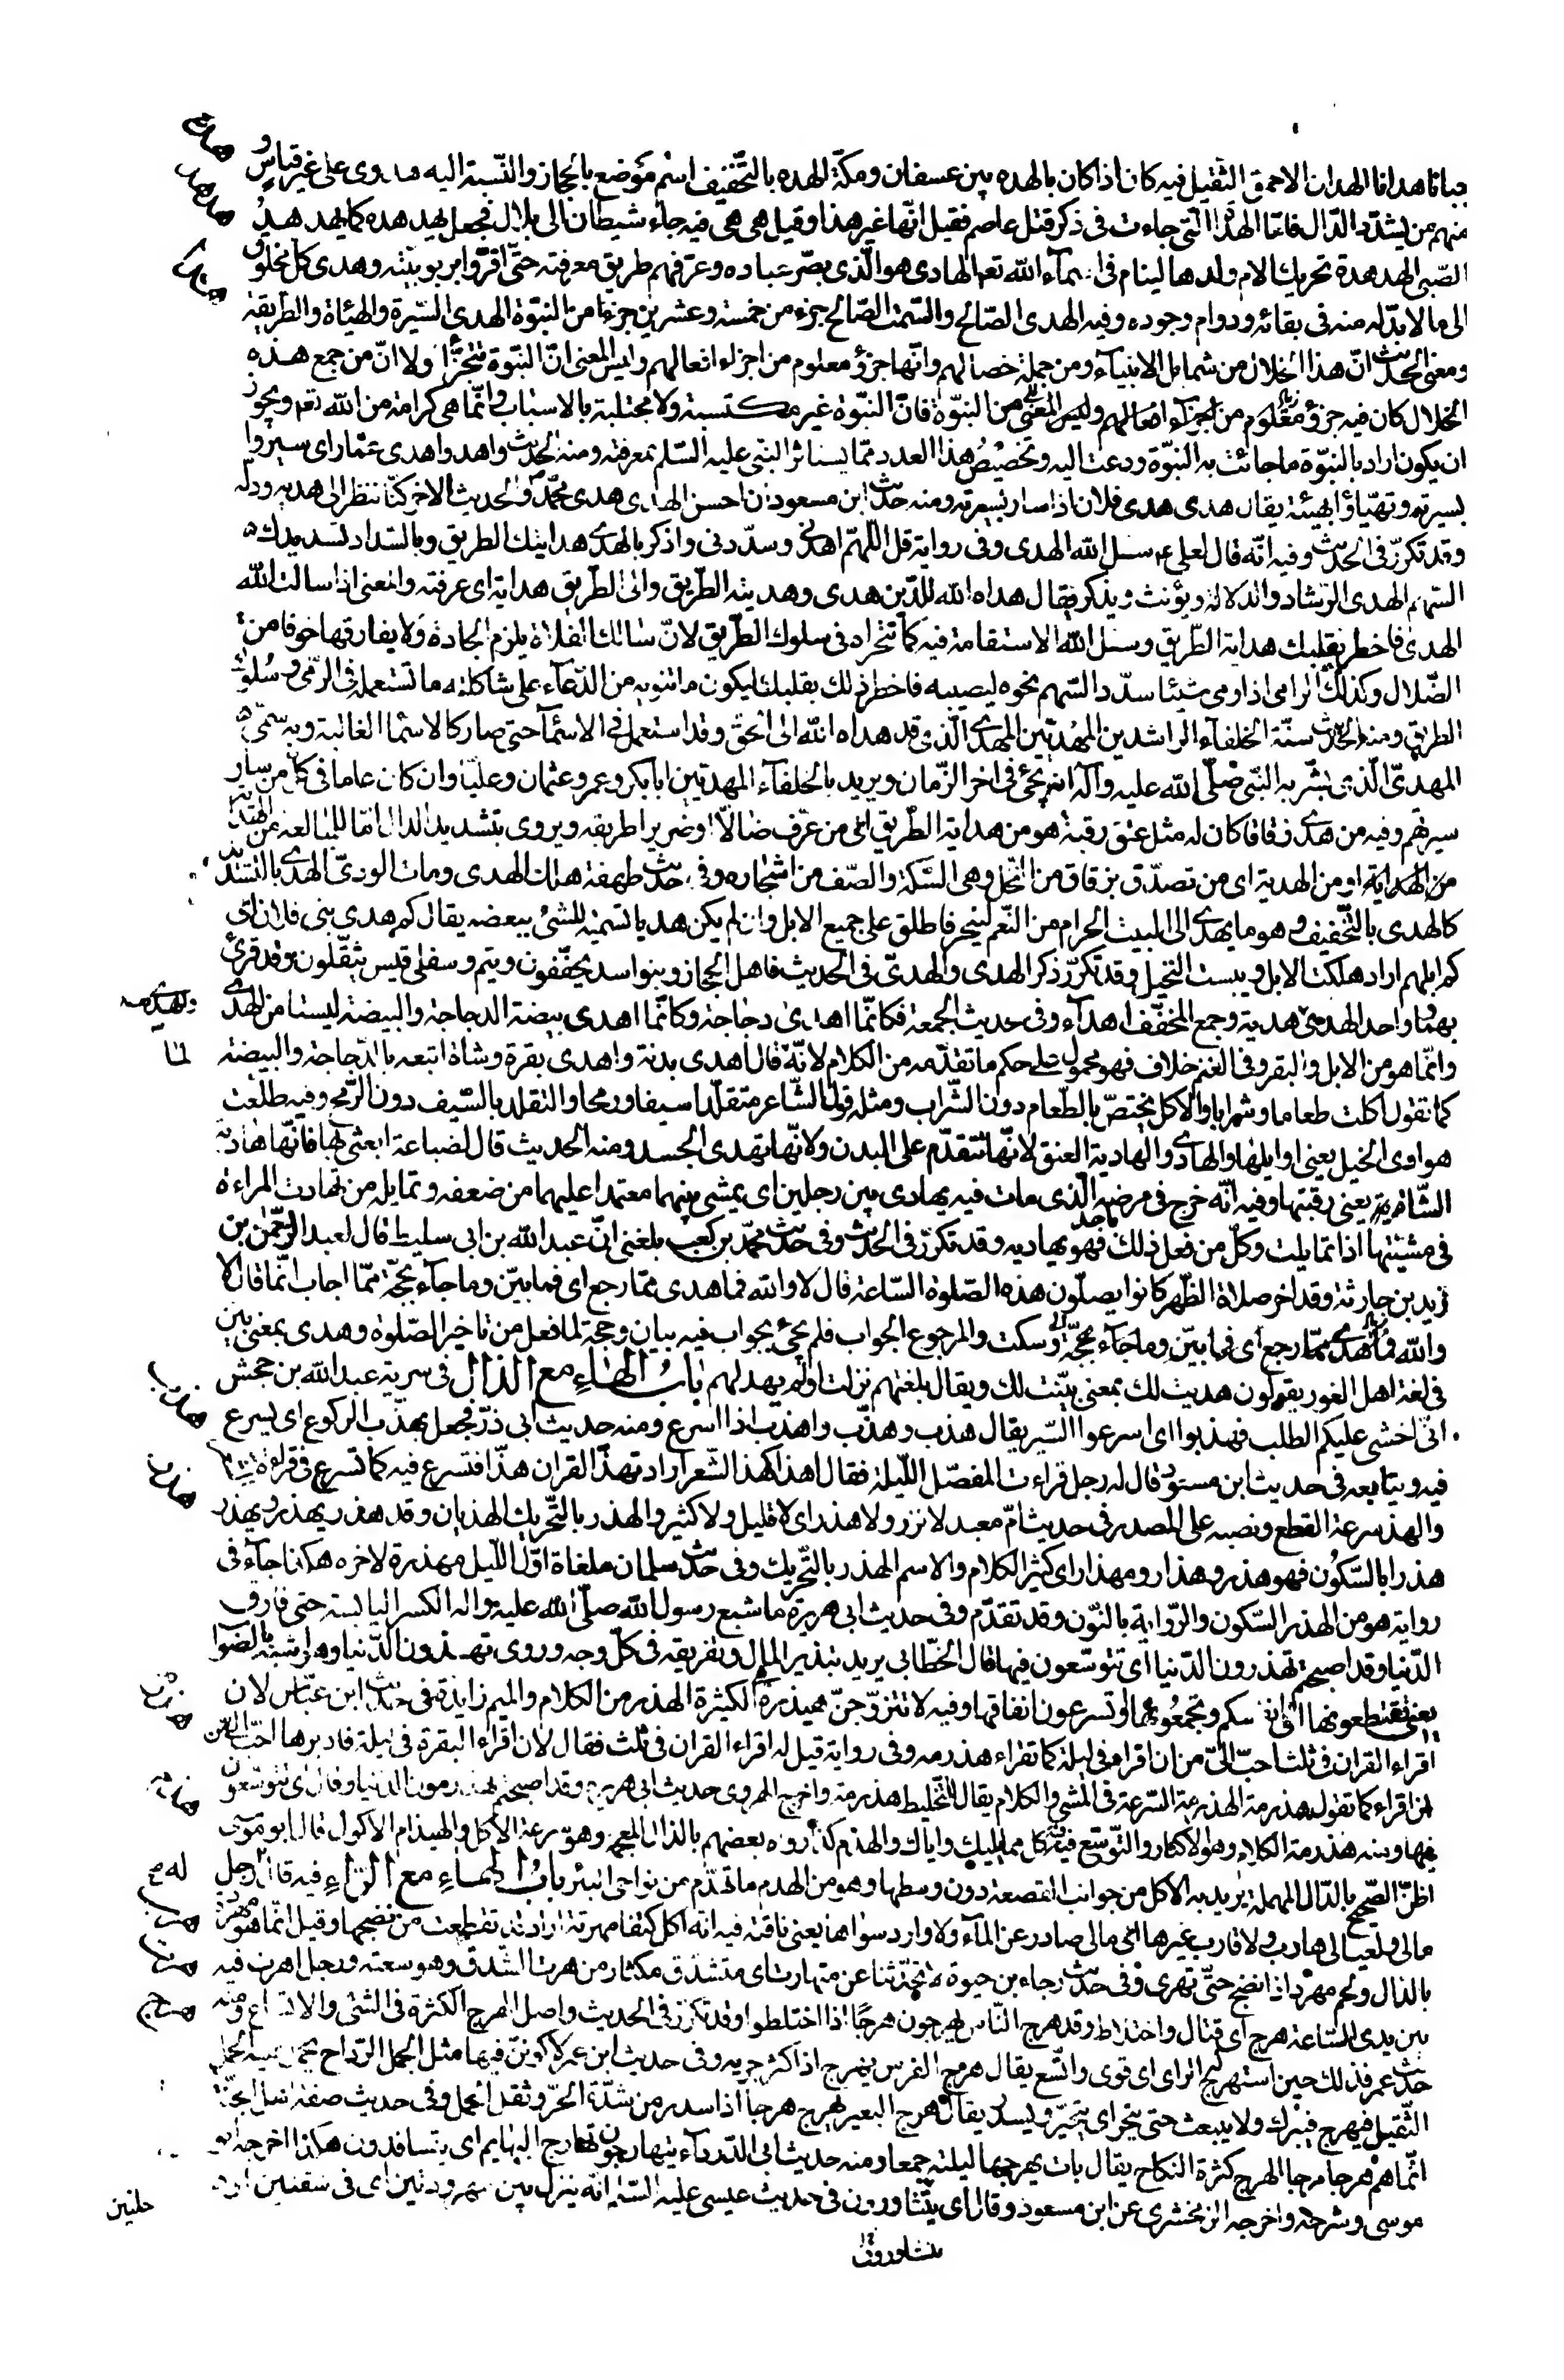 جبانا هدانا الهدان الاحمق الثقيل فيه كان اذا كان بالهده بين عسفان ومكّة الهده بالتّخفيف اسم موضع بالحجاز والنّسبة اليه هدوى على غير قياس و
منهم من يشدّد الدّال فامّا الهداة الّتى جاءت فى ذكر قتل عاصم فقيل انّها غير هذا وقيل هى هى فيه جاء شيطان الى بلال فجعل يهدهده كما يهدهد
الصّبى الهدهدة تحريك الام ولدها لينام فى اسماء الله تعم الهادى هو الّذى بصّر عباده وعرّفهم طريق معرفته حتّى اقرّوا بربوبيّته وهدى كل مخلوق
الى ما لابدّ له منه فى بقائه ودوام وجوده وفيه الهدى الصّالح والسّمت الصّالح جزء من خمسة وعشرين جزءا من النبوّة الهدى السّيرة والهيئاة والطريقة
ومعنى الحديث انّ هذا الخلال من شمايل الانبياء ومن جملة خصالهم وانّها جزؤ معلوم من اجزاء افعالهم وليس المعنى انّ النبوّة تتجزّأ ولا انّ من جمع هذه
الخلال كان فيه جزؤ من النبوّة فانّ النبوّة غير مكتسبة ولا مجتلبة بالاسباب وانّما هى كرامة من الله تعم ويجوز
ان يكون اراد بالنبوّة ما جائت به النبوّة ودعت اليه وتخصيص هذا العدد ممّا يستاثر النبى عليه السّلم بمعرفته ومنه الحديث واهدوا هدى عمّار اى سيروا
بسيرته وتهيّاؤا بهيئته يقال هدى هدى فلان اذا سار بسيرته ومنه حديث ابن مسعود ان احسن الهدى هدى محمّد والحديث الاخر كنّا ننظر الى هديه ودلّه
وقد تكرّر فى الحديث وفيه انّه قال لعلى ع سل الله الهدى وفى رواية قل اللّهمّ اهدنى وسدّدنى واذكر بالهدى هدايتك الطريق وبالسّداد تسديدك
السّهم الهدى الرّشاد والدلالة ويؤنث ويذكر يقال هداه الله للدّين هدى وهديته الطّريق والى الطّريق هداية اى عرفته والمعنى اذا سالت الله
الهدى فاخطر بقلبك هداية الطّريق وسل الله الاستقامة فيه كما تتحراه فى سلوك الطّريق لانّ سالك الفلاة يلزم الجادة ولا يفارقها خوفا من
الضّلال وكذلك الرامى اذا رمى شيئا سدّد السّهم نحوه ليصيبه فاخطر ذلك بقلبك ليكون ما تنويه من الدّعاء على شاكلة ما تستعمله فى الرّمى وسلوك
الطريق ومنه الحديث سنّة الخلفاء الراشدين المهديّين المهدى الّذى قد هداه الله الى الحقّ وقد استعمل فى الاسماء حتى صار كالاسماء الغالبة وبه سمّى
المهدىّ الّذى بشّر به النّبى صلّى الله عليه وآله انه يجئ فى اخر الزّمان ويريد بالخلفاء المهديّين ابا بكر وعمر وعثمان وعليّا وان كان عاما فى كل من سار
سيرتهم وفيه من هدى زقاقا كان له مثل عتق رقبة هو من هداية الطّريق اى من عرّف ضالّا او ضريرا طريقه ويروى بتشديد الدال امّا للمبالغة
من الهداية او من الهدية اى من تصدّق بزقاق من النّخل وهى السّكة والصّف من اشجاره وفى حديث طهفة هلك الهدى ومات الودىّ الهدى بالتشديد
كالهدى بالتّخفيف وهو ما يهدى الى البيت الحرام من النّعم لينحر فاطلق على جميع الابل وان لم يكن هديا تسمية للشئ ببعضه يقال كم هدى بنى فلان اى
كم ابلهم اراد هلكت الابل ويبست النخيل وقد تكرّر ذكر الهدى والهدىّ فى الحديث فاهل الحجاز وبنو اسد يخفّفون وتيم وسفلى قيس يثقّلون وقد قرئ
بهما وواحد الهدى هدية وجمع المخفّف اهداء وفى حديث الجمعة فكانّما اهدى دجاجة وكانّما اهدى بيضة الدجاجة والبيضة ليستا من الهدى
وانّما هو من الابل والبقر وفى الغنم خلاف فهو محمول على حكم ما تقدّمه من الكلام لانّه لمّا قال اهدى بدنة واهدى بقرة وشاة اتبعه بالدّجاجة والبيضة
كما تقول اكلت طعاما وشرابا والاكل يختصّ بالطّعام دون الشّراب ومثله قول الشّاعر متقلّدا سيفا ورمحا والتقلد بالسّيف دون الرّمح وفيه طلعت
هوادى الخيل يعنى اوايلها والهادى والهادية العنق لانّها تتقدّم على البدن ولانّها تهدى الجسد ومنه الحديث قال لضباعة ابعثى بها فانّها هادية
الشّاة يعنى رقبتها وفيه انّه خرج فى مرضه الّذى مات فيه يهادى بين رجلين اى يمشى بينهما معتمدا عليهما من ضعفه وتمايله من تهادت المراءة
فى مشيتها اذا تمايلت وكلّ من فعل ذلك باحد فهو يهاديه وقد تكرّر فى الحديث وفى حديث محمّد بن كعب بلغنى انّ عبد الله بن ابى سليط قال لعبد الرّحمن بن
زيد بن حارثة وقد اخر صلاة الظّهر كانوا يصلّون هذه الصّلوة السّاعة قال لا والله فما هدى ممّا رجع اى فما بيّن وما جاء بحجّة ممّا اجاب انّما قال لا
والله وسكت والمرجوع الجواب فلم يجئ بجواب فيه بيان وحجة لما فعل من تاخير الصّلوة وهدى بمعنى بيّن
فى لغة اهل الغور يقولون هديت لك بمعنى بيّنت لك ويقال بلغتهم نزلت اولم يهد لهم باب الهاء مع الذال فى سرية عبد الله بن جحش
انّى اخشى عليكم الطلب فهذبوا اى اسرعوا السّير يقال هذب وهذّب واهذب اذا اسرع ومنه حديث ابى ذرّ فجعل يهذب الركوع اى يسرع
فيه ويتابعه فى حديث ابن مسعود قال له رجل قراءت المفصّل اللّيلة فقال اهذا كهذ الشّعر اراد تهذ القران هذّا فتسرع فيه كما تسرع فى قراءة
والهذ سرعة القطع ونصبه على المصدر فى حديث امّ معبد لا نزر ولا هذر اى لا قليل ولا كثير والهذر بالتّحريك الهذيان وقد هذر يهذر ويهذر
هذرا بالسّكون فهو هذر وهذار ومهذار اى كثير الكلام والاسم الهذر بالتّحريك وفى حديث سلمان ملغاة اوّل اللّيل مهذرة لاخره هكذا جاء فى
رواية هو من الهذر السّكون والرّواية بالنّون وقد تقدّم وفى حديث ابى هريرة ما شبع رسول الله صلّى الله عليه واله الكسر اليابسة حتى فارق
الدّنيا وقد اصبحتم تهذرون الدّنيا اى تتوسّعون فيها قال الخطّابى يريد تبذير المال وتفريقه فى كلّ وجه وروى تهذون الدّنيا وهو اشبه بالصّواب
يعنى تقتطعونها الى انفسكم وتجمعونها او تسرعون انفاقها وفيه لا تتزوّجنّ هيذرة الكثيرة الهذر من الكلام والميم زايدة فى حديث ابن عبّاس لان
اقراء القران فى ثلث احبّ الىّ من ان اقراه فى ليلة كما تقراء هذرمه وفى رواية قيل له اقراء القران فى ثلث فقال لان اقراء البقرة فى ليلة فادبرها احبّ الىّ من
ان اقراء كما تقول هذرمة الهذرمة السّرعة فى المشى والكلام يقال للتّخليط هذرمة واخرج الهروى حديث ابى هريرة وقد اصبحتم تهذرمون الدّنيا وقال اى تتوسّعون
فيها ومنه هذرمة الكلام وهو الاكثار والتّوسّع فيه كل ممّا يليك واياك والهذم كذا رواه بعضهم بالذال المعجمة وهو سرعة الاكل والهيذام الاكول قال ابو موسى
اظنّ الصّحيح بالدّال المهملة يريد به الاكل من جوانب القصعة دون وسطها وهو من الهدم ما تهدّم من نواحى البئر باب الهاء مع الرّاء فيه قال له رجل
مالى ولعيالى هارب ولا قارب غيرها اى مالى صادر عن الماء ولا وارد سواها يعنى ناقته فيه انه اكل كتفا مهرتة اراد قد تقطعت من نضجها وقيل انّما هو مهردة
بالدال ولحم مهرد اذا نضج حتّى تهرى وفى حديث رجاء بن حيوة لا تحدّثنا عن متهارت اى متشدّق مكثار من هرت الشّدق وهو سعته ورجل اهرت فيه
بين يدى السّاعة هرج اى قتال واختلاط وقد هرج النّاس يهرجون هرجا اذا اختلطوا وقد تكرّر فى الحديث واصل الهرج الكثرة فى الشئ والاتساع ومنه
حديث عمر فذلك حين استهرج له الراى اى قوى واتّسع يقال هرج الفرس يهرج اذا كثر جريه وفى حديث ابن عمر لاكوننّ فيها مثل الجمل الرّداح يحمل عليه الحمل
الثّقيل فيهرج فيبرك ولا ينبعث حتى ينحر اى يتحيّر ويسدر يقال هرج البعير يهرج هرجا اذا سدر من شدّة الحرّ وثقل الحمل وفى حديث صفة اهل الجنّة
انّما هم هرجا مرجا الهرج كثرة النكاح يقال بات يهرجها ليلته جمعا ومنه حديث ابى الدّرداء يتهارجون تهارج البهايم اى يتسافدون هكذا اخرجه ابو
موسى وشرحه واخرجه الزمخشرى عن ابن مسعود وقال اى يتشاورون فى حديث عيسى عليه السّلم انّه ينزل بين مهرودتين اى فى شقتين او
حلتين